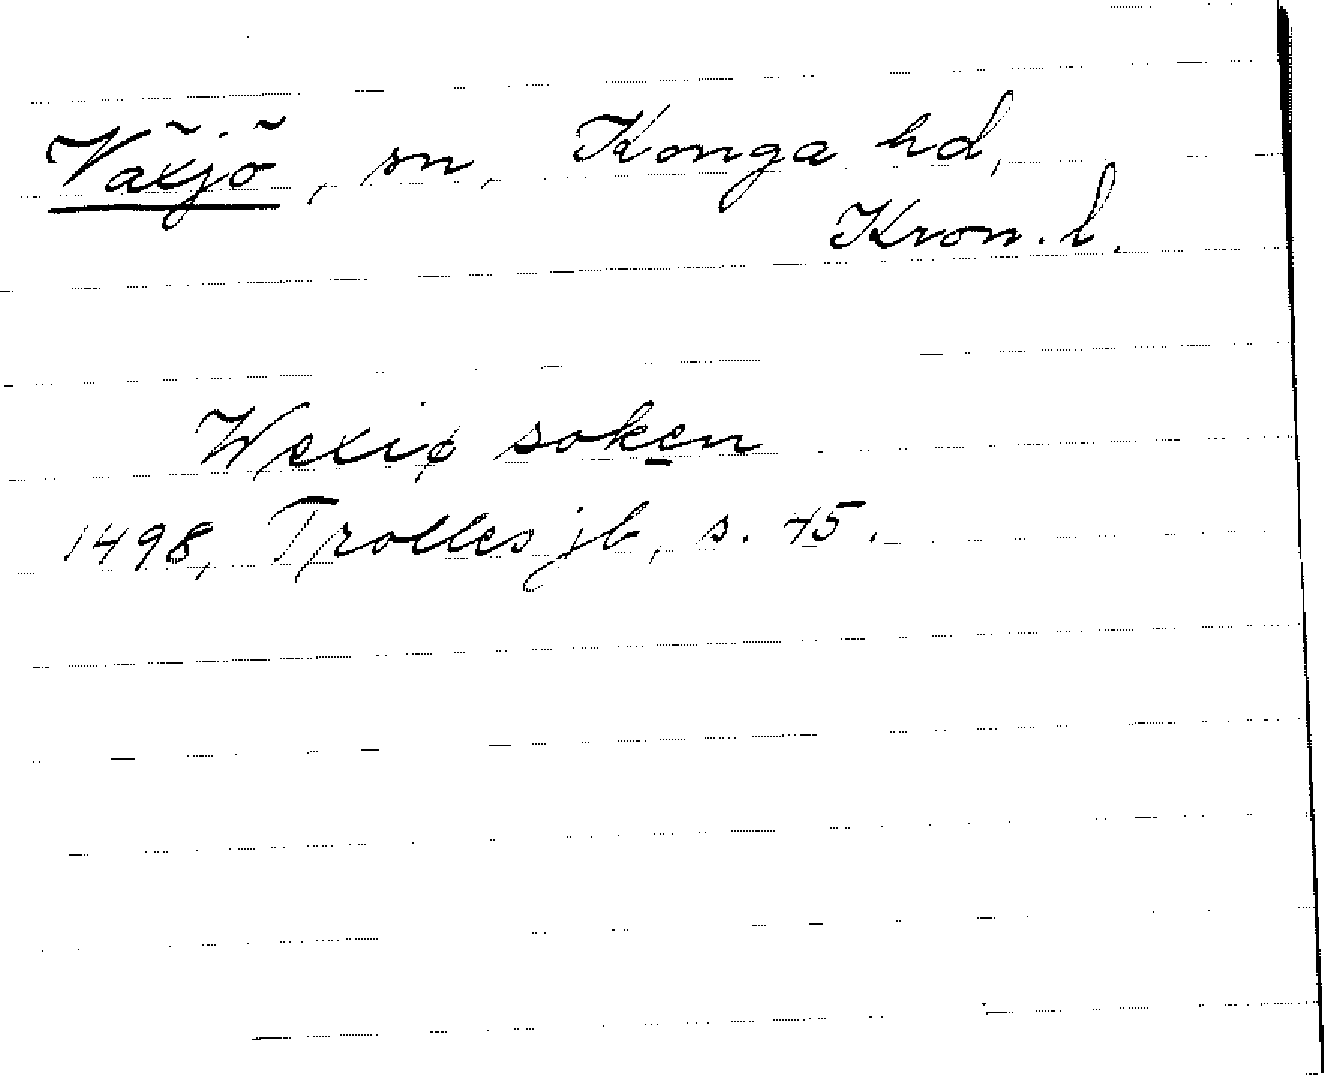 Växjö, sn, Konga hd,
Kron. l.
Wexiø soken
1498, Trolles jb, s. 45.